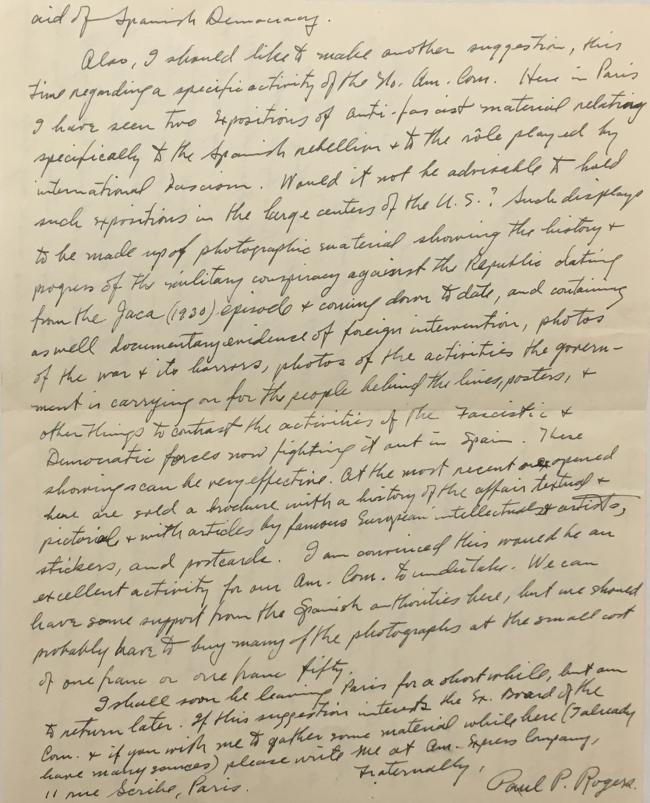 aid of Spanish Democracy.
Also, I should like to make another suggestion, this
time regarding a specific activity of the No. Am. Com. Here in Paris
I have seen two expositions of anti-fascist material relating
specifically to the Spanish rebellion & to the rôle played by
international Fascism. Would it not be advisable to hold
such expositions in the large centers of the U.S.? Such displays
to be made up of photographic material showing the history &
progress of the military conspiracy against the Republic dating
from the Jaca (1930) episode & coming down to date, and containing
as well documentary evidence of foreign intervention, photos
of the war & its horrors, photos of the activities the govern-
ment is carrying on for the people behind the lines, posters, &
other things to contrast the activities of the Fascistic &
Democratic forces now fighting it out in Spain. These
showings can be very effective. At the most recent opened
here are sold a brochure with a history of the affair textual &
pictorial & with articles by famous European intellectuals & artists,
stickers, and postcards. I am convinced this would be an
excellent activity for our Am. Com. to undertake. We can
have some support from the Spanish authorities here, but we should
probably have to buy many of the photographs at the small cost
of one franc or one franc fifty.
I shall soon be leaving Paris for a short while, but am
to return later. If this suggestion interests the Ex. Board of the
Com. & if you wish me to gather some material while here (I already
have many sources) please write me at Am. Express Company,
11 rue Scribe, Paris. Fraternally,
Paul P. Rogers.